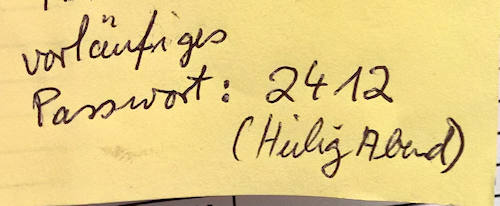 vorläufiges
Passwort: 2412
(Heilig Abend)